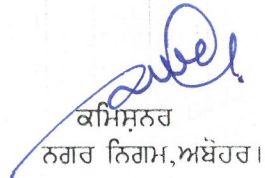 ਕਮਿਸ਼ਨਰ
ਨਗਰ ਨਿਗਮ,ਅਬੋਹਰ।